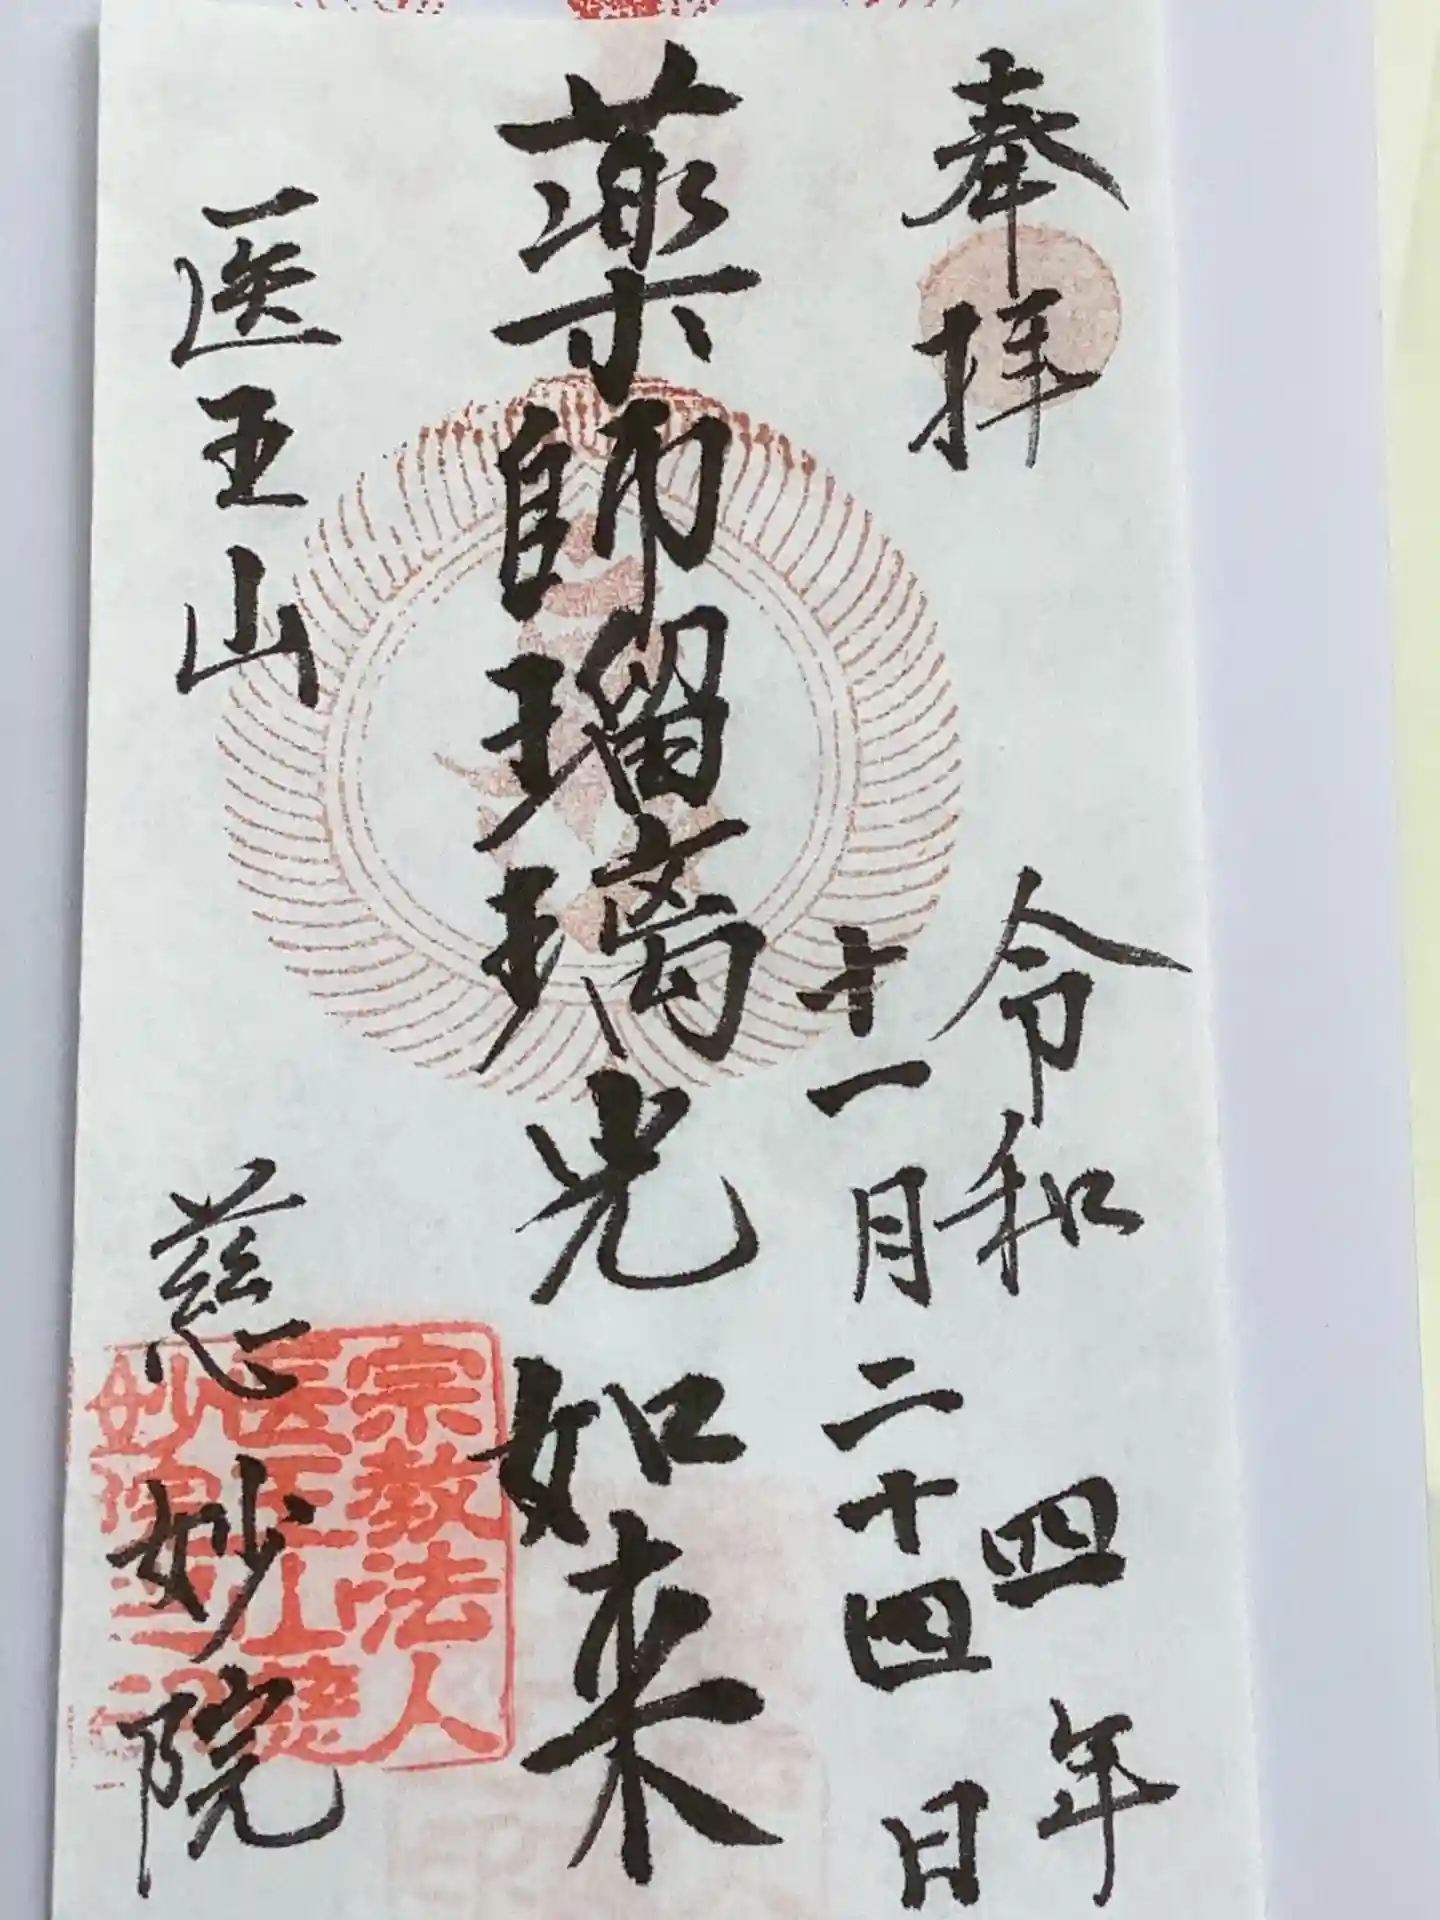 奉拝
令和四年
十一月二十四日
薬師瑠璃光如来
医王山
慈妙院
宗教法人
医王山慈
妙院之印